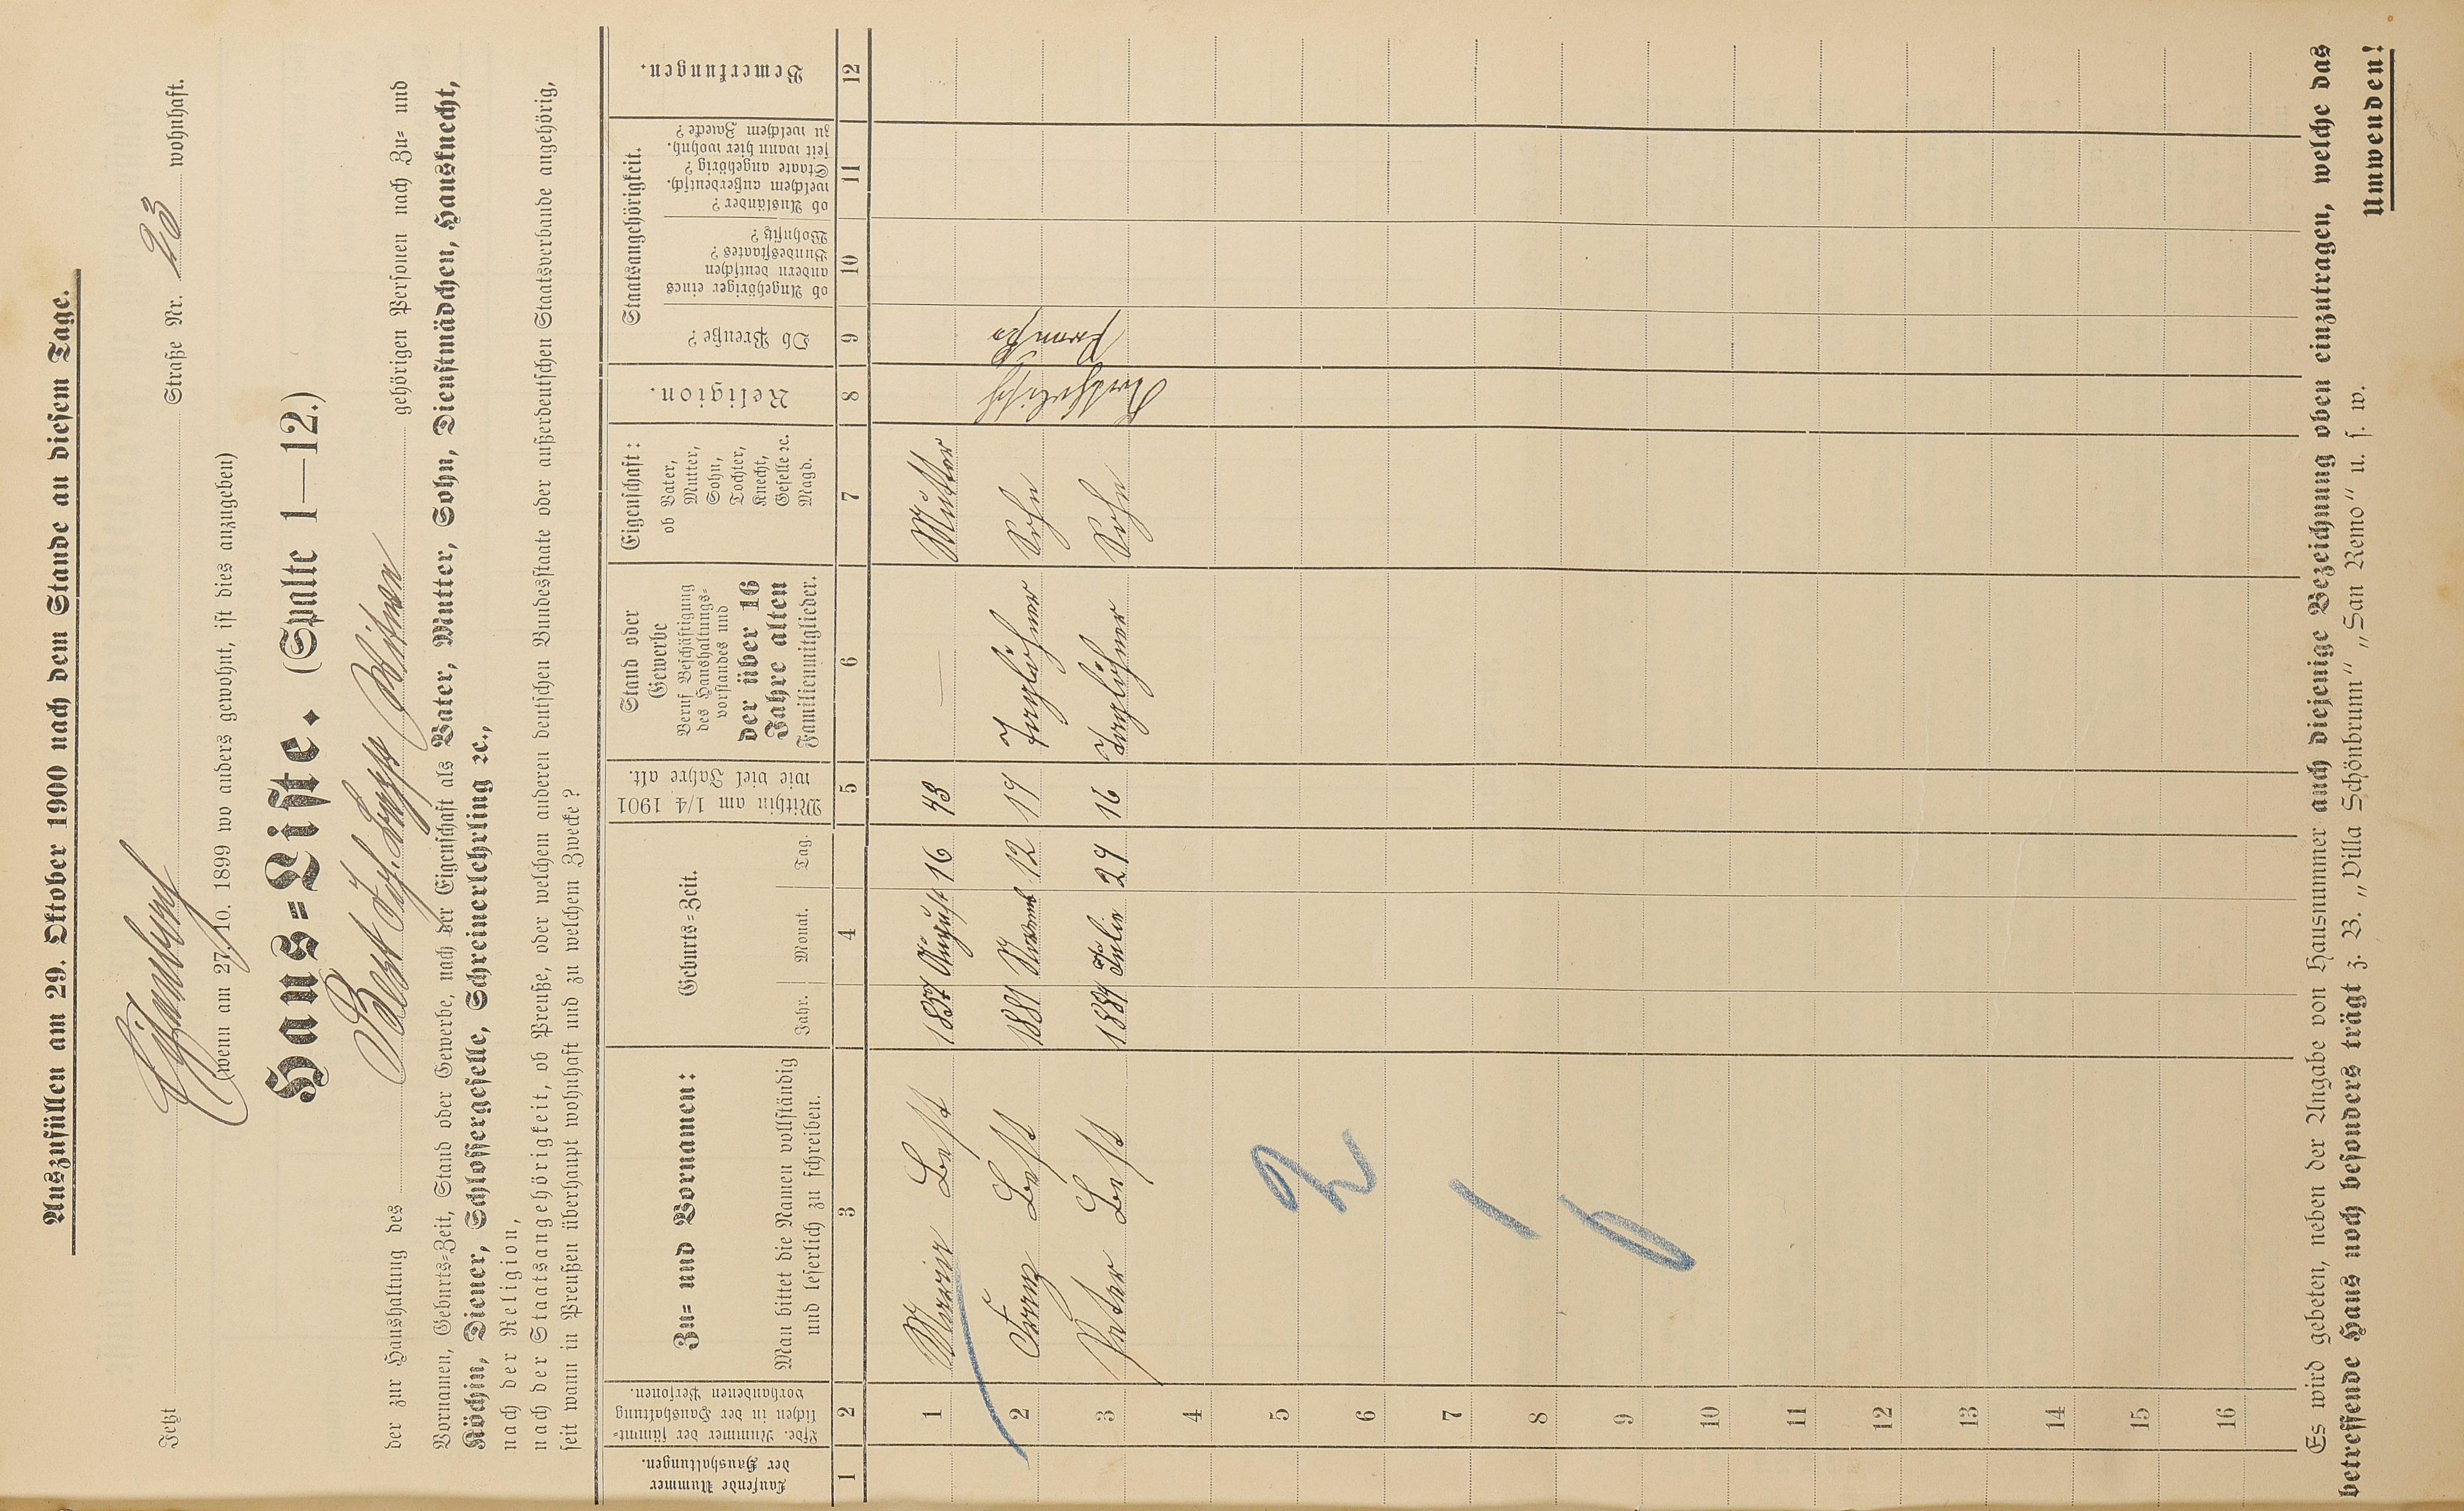 Auszufüllen am 29. Oktober 1900 nach dem Stande an diesem Tage.
Jetzt Straße Nr. 23 wohnhaft.
(wenn am 27. 10. 1899 wo anders gewohnt, ist dies anzugeben)
Haus-Liste. (Spalte 1—12.)
der zur Haushaltung des gehörigen Personen nach Zu- und
Vornamen, Geburts-Zeit, Stand oder Gewerbe, nach der Eigenschaft als Vater, Mutter, Sohn, Dienstmädchen, Hausknecht,
Köchin, Diener, Schlossergeselle, Schreinerlehrling ꝛc.,
nach der Religion,
nach der Staatsangehörigkeit, ob Preuße, oder welchem anderen deutschen Bundesstaate oder außerdeutschen Staatsverbande angehörig,
seit wann in Preußen überhaupt wohnhaft und zu welchem Zwecke?
Laufende Nummer der Haushaltungen.
Lfde. Nummer der sämmtlichen in der Haushaltung vorhandenen Personen.
Zu- und Vornamen:
Man bittet die Namen vollständig
und leserlich zu schreiben.
Geburts-Zeit.
Jahr. Monat. Tag.
Mithin am 1/4 1901
wie viel Jahre alt.
Stand oder
Gewerbe
Beruf Beschäftigung
des Haushaltungs-
vorstandes und
der über 16
Jahre alten
Familienmitglieder.
Eigenschaft:
ob Vater,
Mutter,
Sohn,
Tochter,
Knecht,
Geselle ꝛc.
Magd.
Religion.
Staatsangehörigkeit.
Ob Preuße?
ob Angehöriger eines
andern deutschen
Bundesstaates?
Wohnsitz?
ob Ausländer?
welchem außerdeutsch.
Staate angehörig?
seit wann hier wohnh.
zu welchem Zwecke?
Bemerkungen.
1 2 3 4 5 6 7 8 9 10 11 12
1 Maria Best 1857 August 16 43 — Mutter
2 Franz Best 1881 Novemb 12 19 Taglöhner Sohn Katholisch Preuße
3 Peter Best 1884 Julie 29 16 Taglöhner Sohn
4
5
6
7
8
9
10
11
12
13
14
15
16
Es wird gebeten, neben der Angabe von Hausnummer auch diejenige Bezeichnung oben einzutragen, welche das
betreffende Haus noch besonders trägt z. B. „Villa Schönbrunn" „San Remo" u. s. w.
Umwenden!